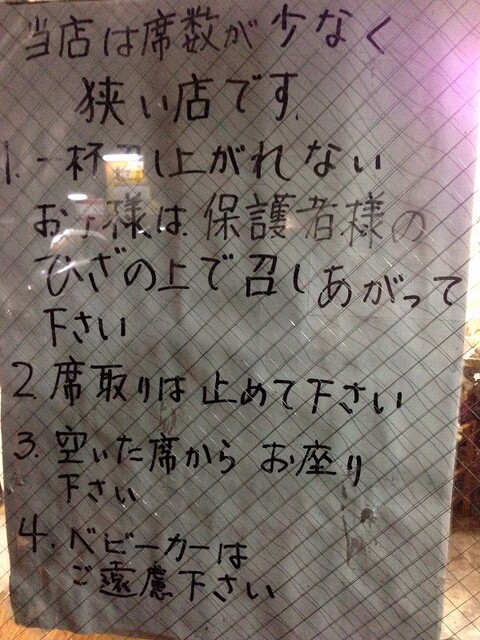 当店は席数が少なく
狭い店です.
1.一杯召し上がれない
お子様は保護者様の
ひざの上で召しあがって
下さい
2 席取りは止めて下さい
3.空いた席からお座り
下さい
4.ベビーカーは
ご遠慮下さい